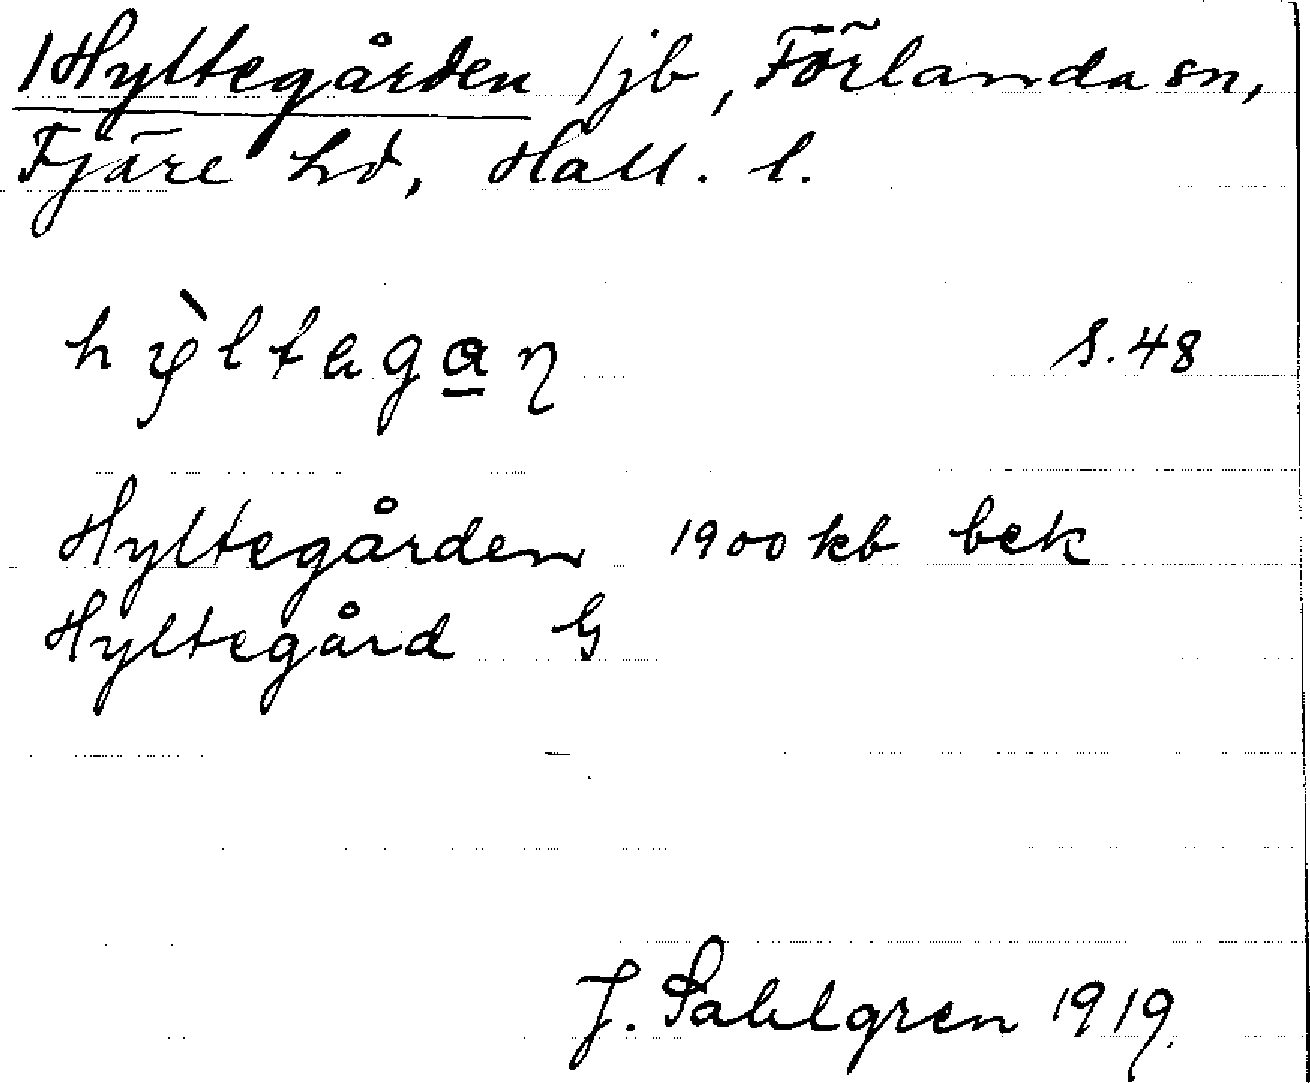 1 Hyltegården 1 jb, Förlanda sn,
Fjäre hd, Hall. l.
hỳltagan S. 48
Hyltegården 1900 kb bek
Hyltegård G
J. Sahlgren 1919.